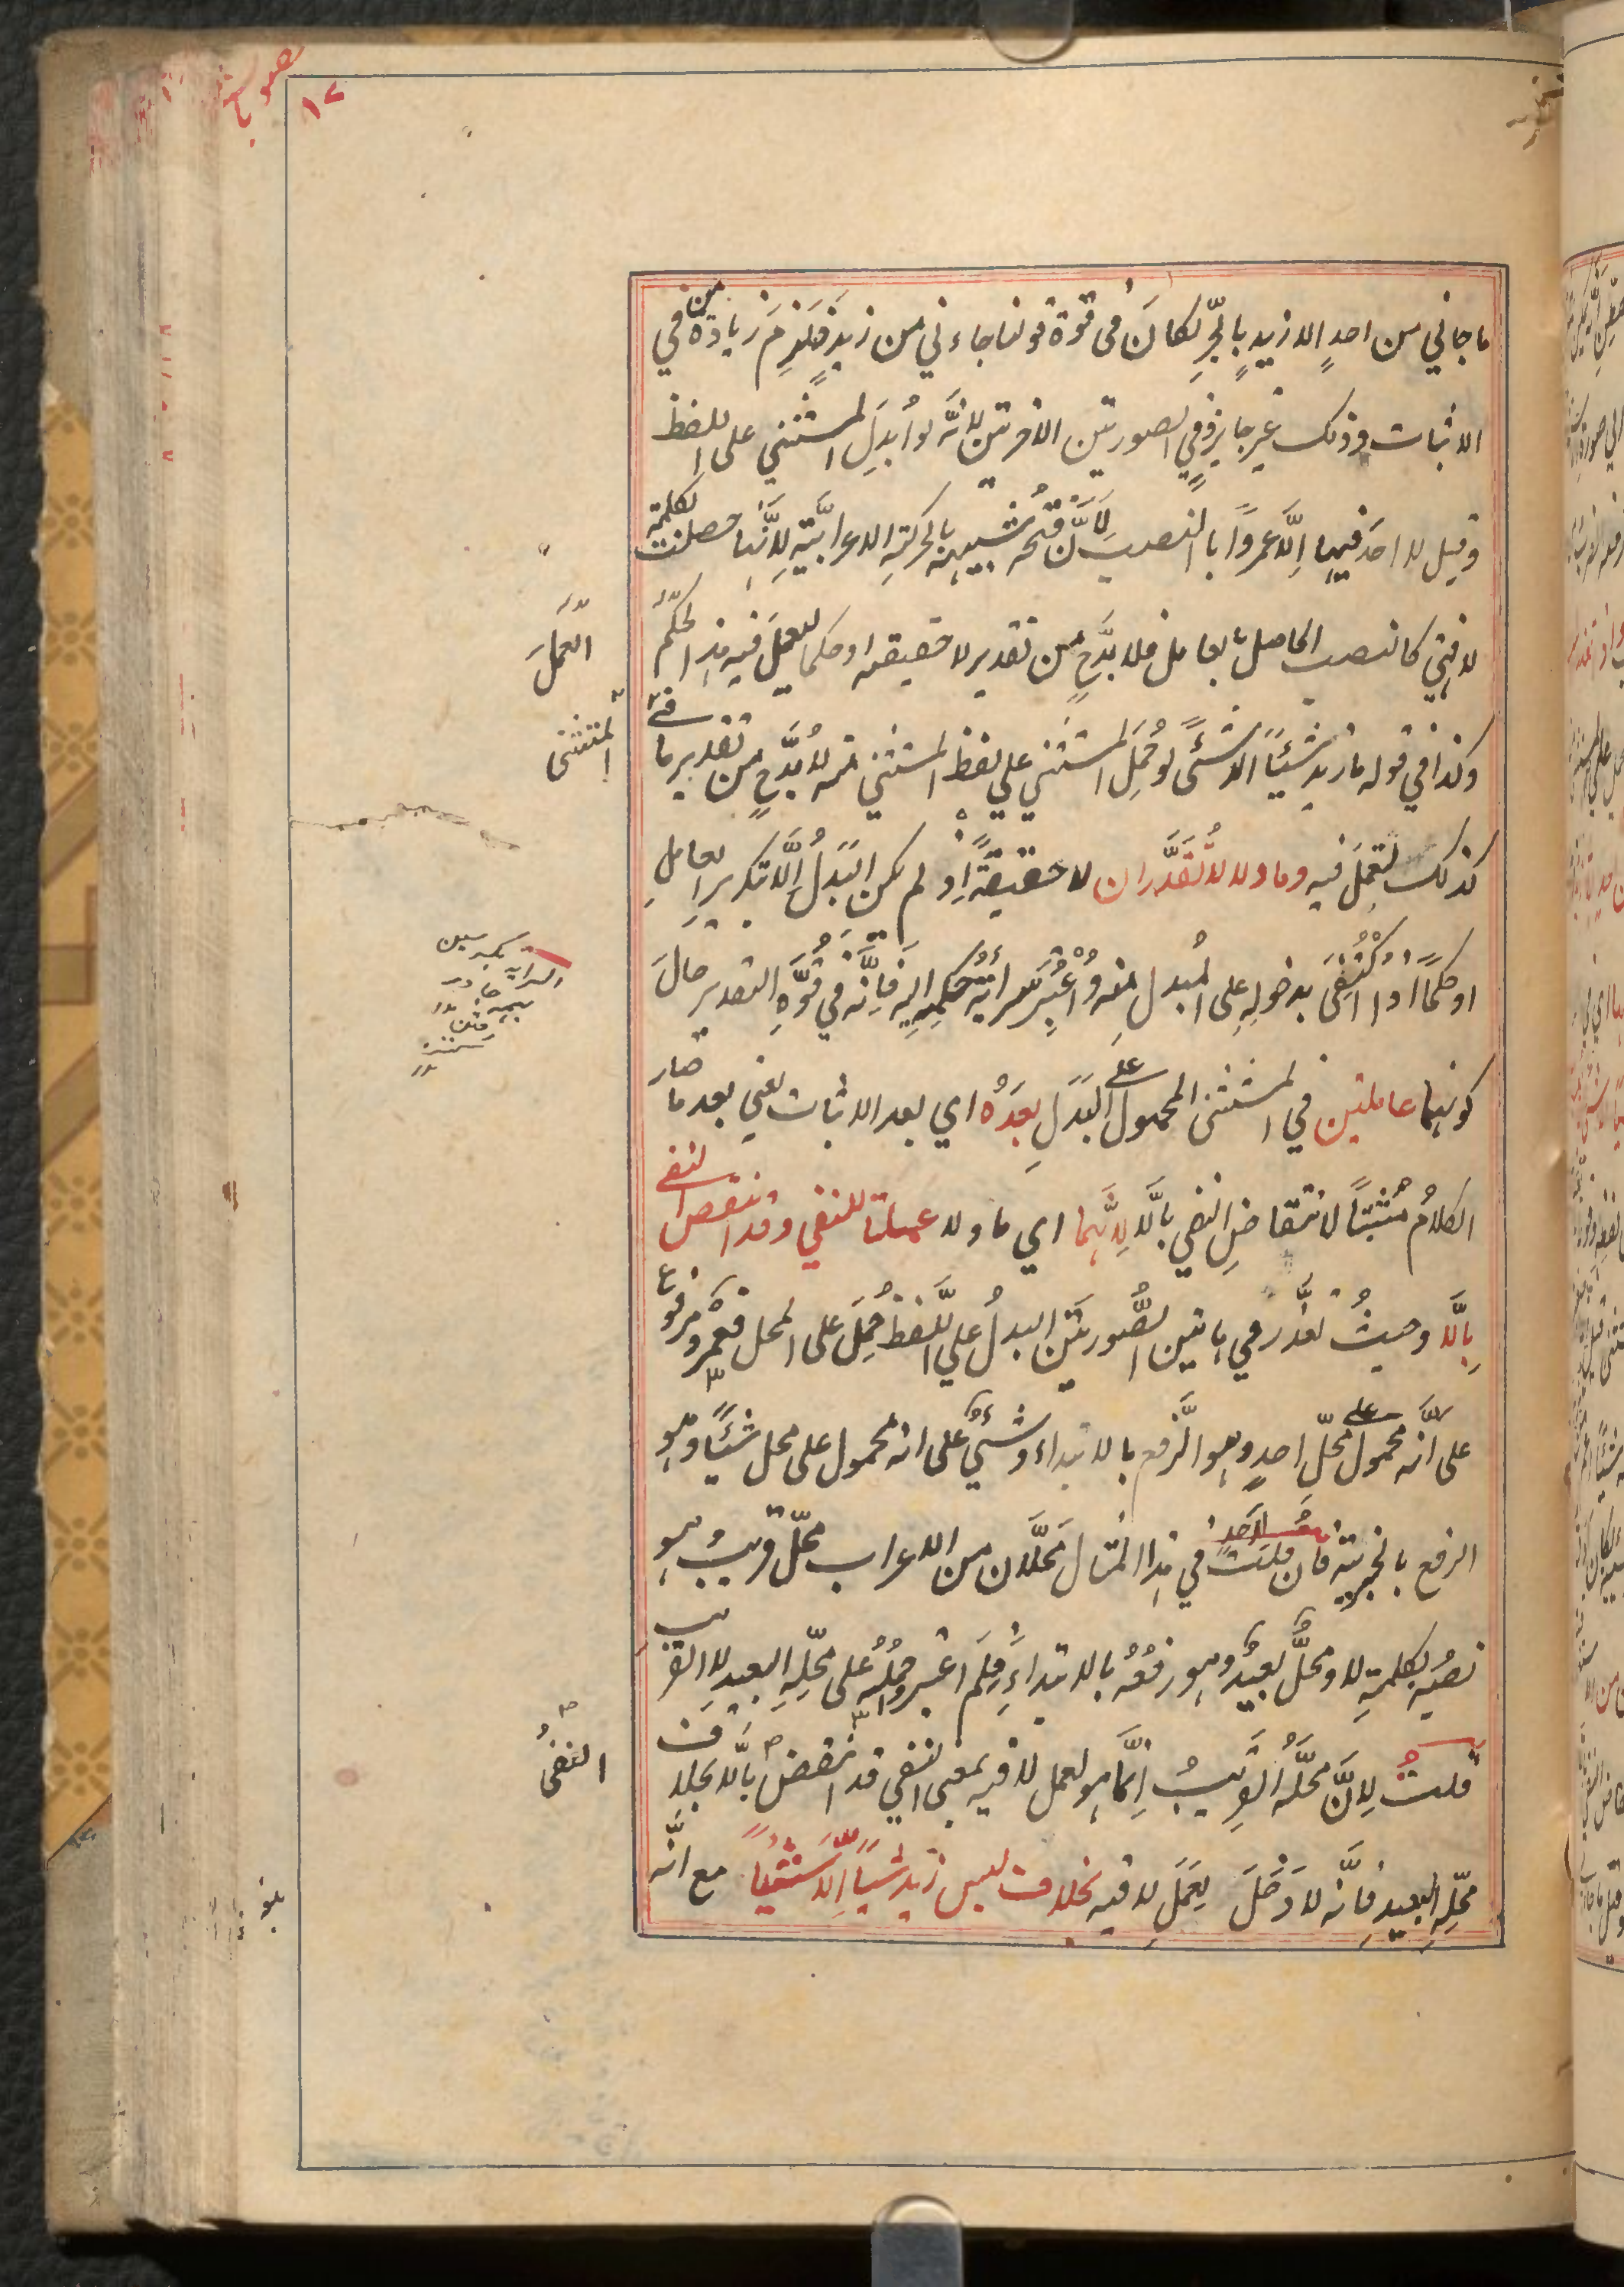 ما جاني من احدٍ الا زيدٍ بالجرِّ لكانَ في قوة قولنا جاءني من زيدٍ فلزِمَ زيادة من في
الاثبات وذلك غير جايزٍ وفي الصورتين الاخرتين لانَّه لو اُبدِلَ المستثني على اللفظ
وقيل لا احدَ فيها اِلّا عمروًا بالنصب لانَّ فتحه شبيهة بالحركة الاعرابيّة لانّها حصلت بكلمة
لا فهي كالنصب الحاصل بالعامل فلا بدَّ ح من تقدير لا حقيقة او حكما ليعملَ فيه هذا الحكمَ
وكذا في قوله ما زيد شيئًا الا شئً لو حُمِلَ المستثني على لفظ المستثني منه لا بُدَّ ح من تقدير ما في
كذلك لتعملَ فيه وما ولا لا تُقدَّران لا حقيقةً اذ لم يكن البَدَلُ اِلّا تكرير العاملِ
او حكمًا اذا اكْتُفِيَ بدخوله على المُبدل منه واعْتُبِرَ سرايَةُ حُكمِهِ اليه فانّه في قوَّةِ التقدير حالَ
كونهما عاملتين في المستثنى المحمول على البَدَلِ بعدَهُ اي بعد الاثبات يعني بعد ما صار
الكلامُ مُثبتًا لانتقاضِ النفي بالّا لِانَّهما اي ما ولا عملتا للنفي وقد انتقض النفى
بِالّا وحيثُ تعذَّر في هاتين الصُّورتَين البدلُ على اللَّفظ حُمِلَ على المحل فعمروٌ مرفوع
على انّه محمول على محلّ احدٍ وهو الرَّفع بالابتداء وشئٌ على انه محمول على محل شيئًا وهو
الرفع بالخبرية فان قلت لاحدٍ في هذا المثال مَحلّان من الاعراب محلّ قريبٌ وهو
نصبُه بكلمة لا ومحلٌّ بعيدٌ وهو رفعُهُ بالابتداءِ فلِمَ اعتبر حملُه على محلِّه البعيد لا القريب
قلت لِانَّ محلَّه القريبُ اِنّما هو لعمل لا فيه بمعنى النفي قد انتقض بالّا بخلاف
محلِّه البعيدِ فانّه لا دَخَلَ لعمَلِ لا فيه بخلاف ليس زيد شيئًا اِلّا شيئًا مع انَّه
العملَ
المستثنى
النفىُ
١٢